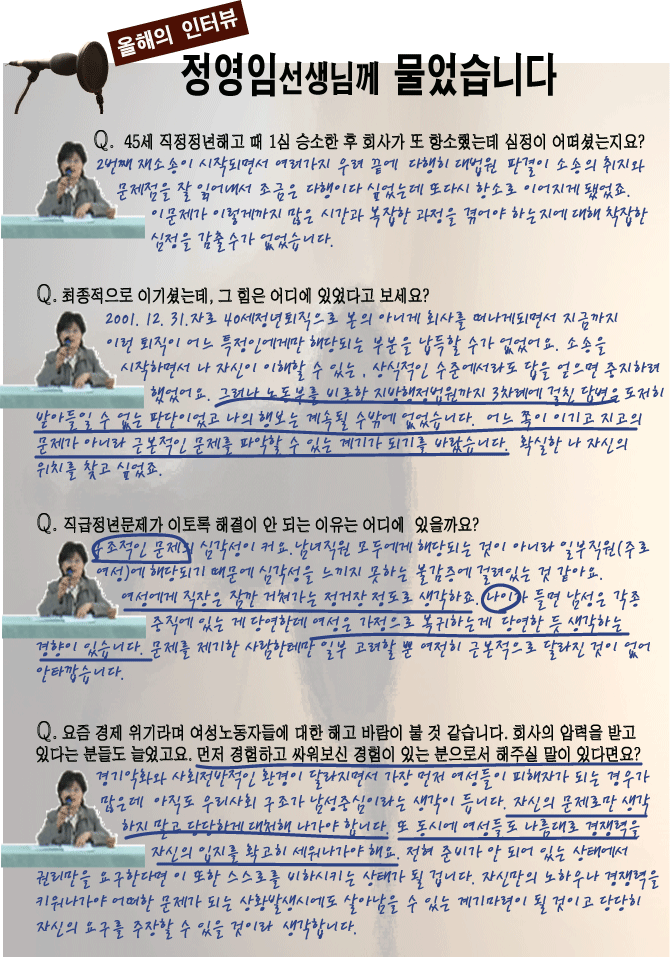 올해의 인터뷰
정영임선생님께 물었습니다
Q. 45세 직정정년해고 때 1심 승소한 후 회사가 또 항소했는데 심정이 어떠셨는지요?
2번째 재소송이 시작되면서 여러가지 우려 끝에 다행히 대법원 판결이 소송의 취지와
문제점을 잘 읽어내서 조금은 다행이다 싶었는데 또다시 항소로 이어지게 됐었죠.
이문제가 이렇게까지 많은 시간과 복잡한 과정을 겪어야 하는지에 대해 착잡한
심정을 감출수가 없었습니다.
Q. 최종적으로 이기셨는데, 그 힘은 어디에 있었다고 보세요?
2001. 12. 31.자로 40세정년퇴직으로 본의 아니게 회사를 떠나게되면서 지금까지
이런 퇴직이 어느 특정인에게만 해당되는 부분을 납득할 수가 없었어요. 소송을
시작하면서 나 자신이 이해할 수 있는, 상식적인 수준에서라도 답을 얻으면 중지하려
했었어요. 그러나 노동부를 비롯한 지방행정법원까지 3차례에 걸친 답변은 도저히
받아들일 수 없는 판단이었고 나의 행보는 계속될 수밖에 없었습니다. 어느 쪽이 이기고 지고의
문제가 아니라 근본적인 문제를 파악할 수 있는 계기가 되기를 바랐습니다. 확실한 나 자신의
위치를 찾고 싶었죠.
Q. 직급정년문제가 이토록 해결이 안 되는 이유는 어디에 있을까요?
구조적인 문제의 심각성이 커요. 남녀직원 모두에게 해당되는 것이 아니라 일부직원(주로
여성)에게 해당되기 때문에 심각성을 느끼지 못하는 불감증에 걸려있는 것 같아요.
여성에게 직장은 잠깐 거쳐가는 정거장 정도로 생각하죠. 나이가 들면 남성은 각종
중직에 있는 게 당연한데 여성은 가정으로 복귀하는게 당연한 듯 생각하는
경향이 있습니다. 문제를 제기한 사람한테만 일부 고려할 뿐 여전히 근본적으로 달라진 것이 없어
안타깝습니다.
Q. 요즘 경제 위기라며 여성노동자들에 대한 해고 바람이 불 것 같습니다. 회사의 압력을 받고
있다는 분들도 늘었고요. 먼저 경험하고 싸워보신 경험이 있는 분으로서 해주실 말이 있다면요?
경기악화와 사회전반적인 환경이 달라지면서 가장 먼저 여성들이 피해자가 되는 경우가
많은데 아직도 우리사회 구조가 남성중심이라는 생각이 듭니다. 자신의 문제로만 생각
하지 말고 당당하게 대처해 나가야 합니다. 또 동시에 여성들도 나름대로 경쟁력을
자신의 입지를 확고히 세워나가야 해요. 전혀 준비가 안 되어 있는 상태에서
권리만을 요구한다면 이 또한 스스로를 비하시키는 상태가 될 겁니다. 자신만의 노하우나 경쟁력을
키워나가야 어떠한 문제가 되는 상황발생시에도 살아남을 수 있는 계기마련이 될 것이고 당당히
자신의 요구를 주장할 수 있을 것이라 생각합니다.